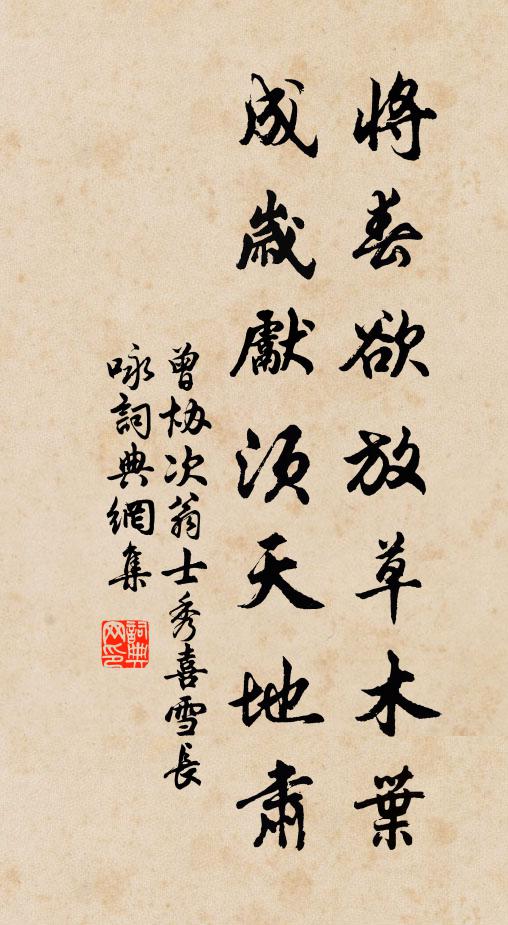 將春欲放草木葉
成歲獻須天地肅
曾協次翁士秀喜雪長
咏詞典網集
詞典網印